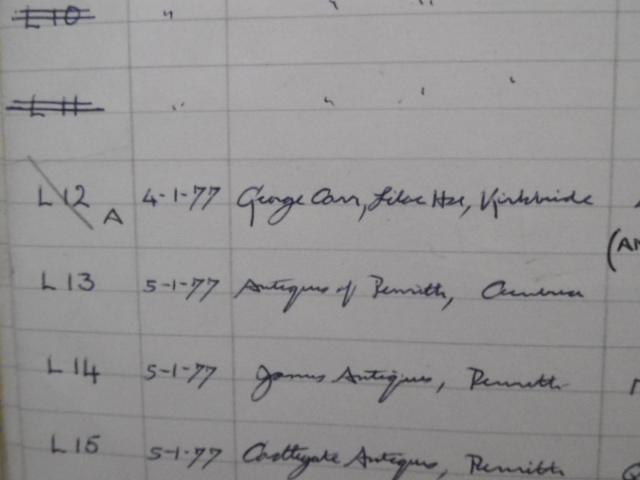 L10 "
L11 " " " "
L12 A 4-1-77 George Carr, Lilac Hse, Kirkbride
(AN
L13 5-1-77 Antiques of Penrith, Cumbria
L14 5-1-77 James Antiques, Penrith
L15 5-1-77 Castlegate Antiques, Penrith